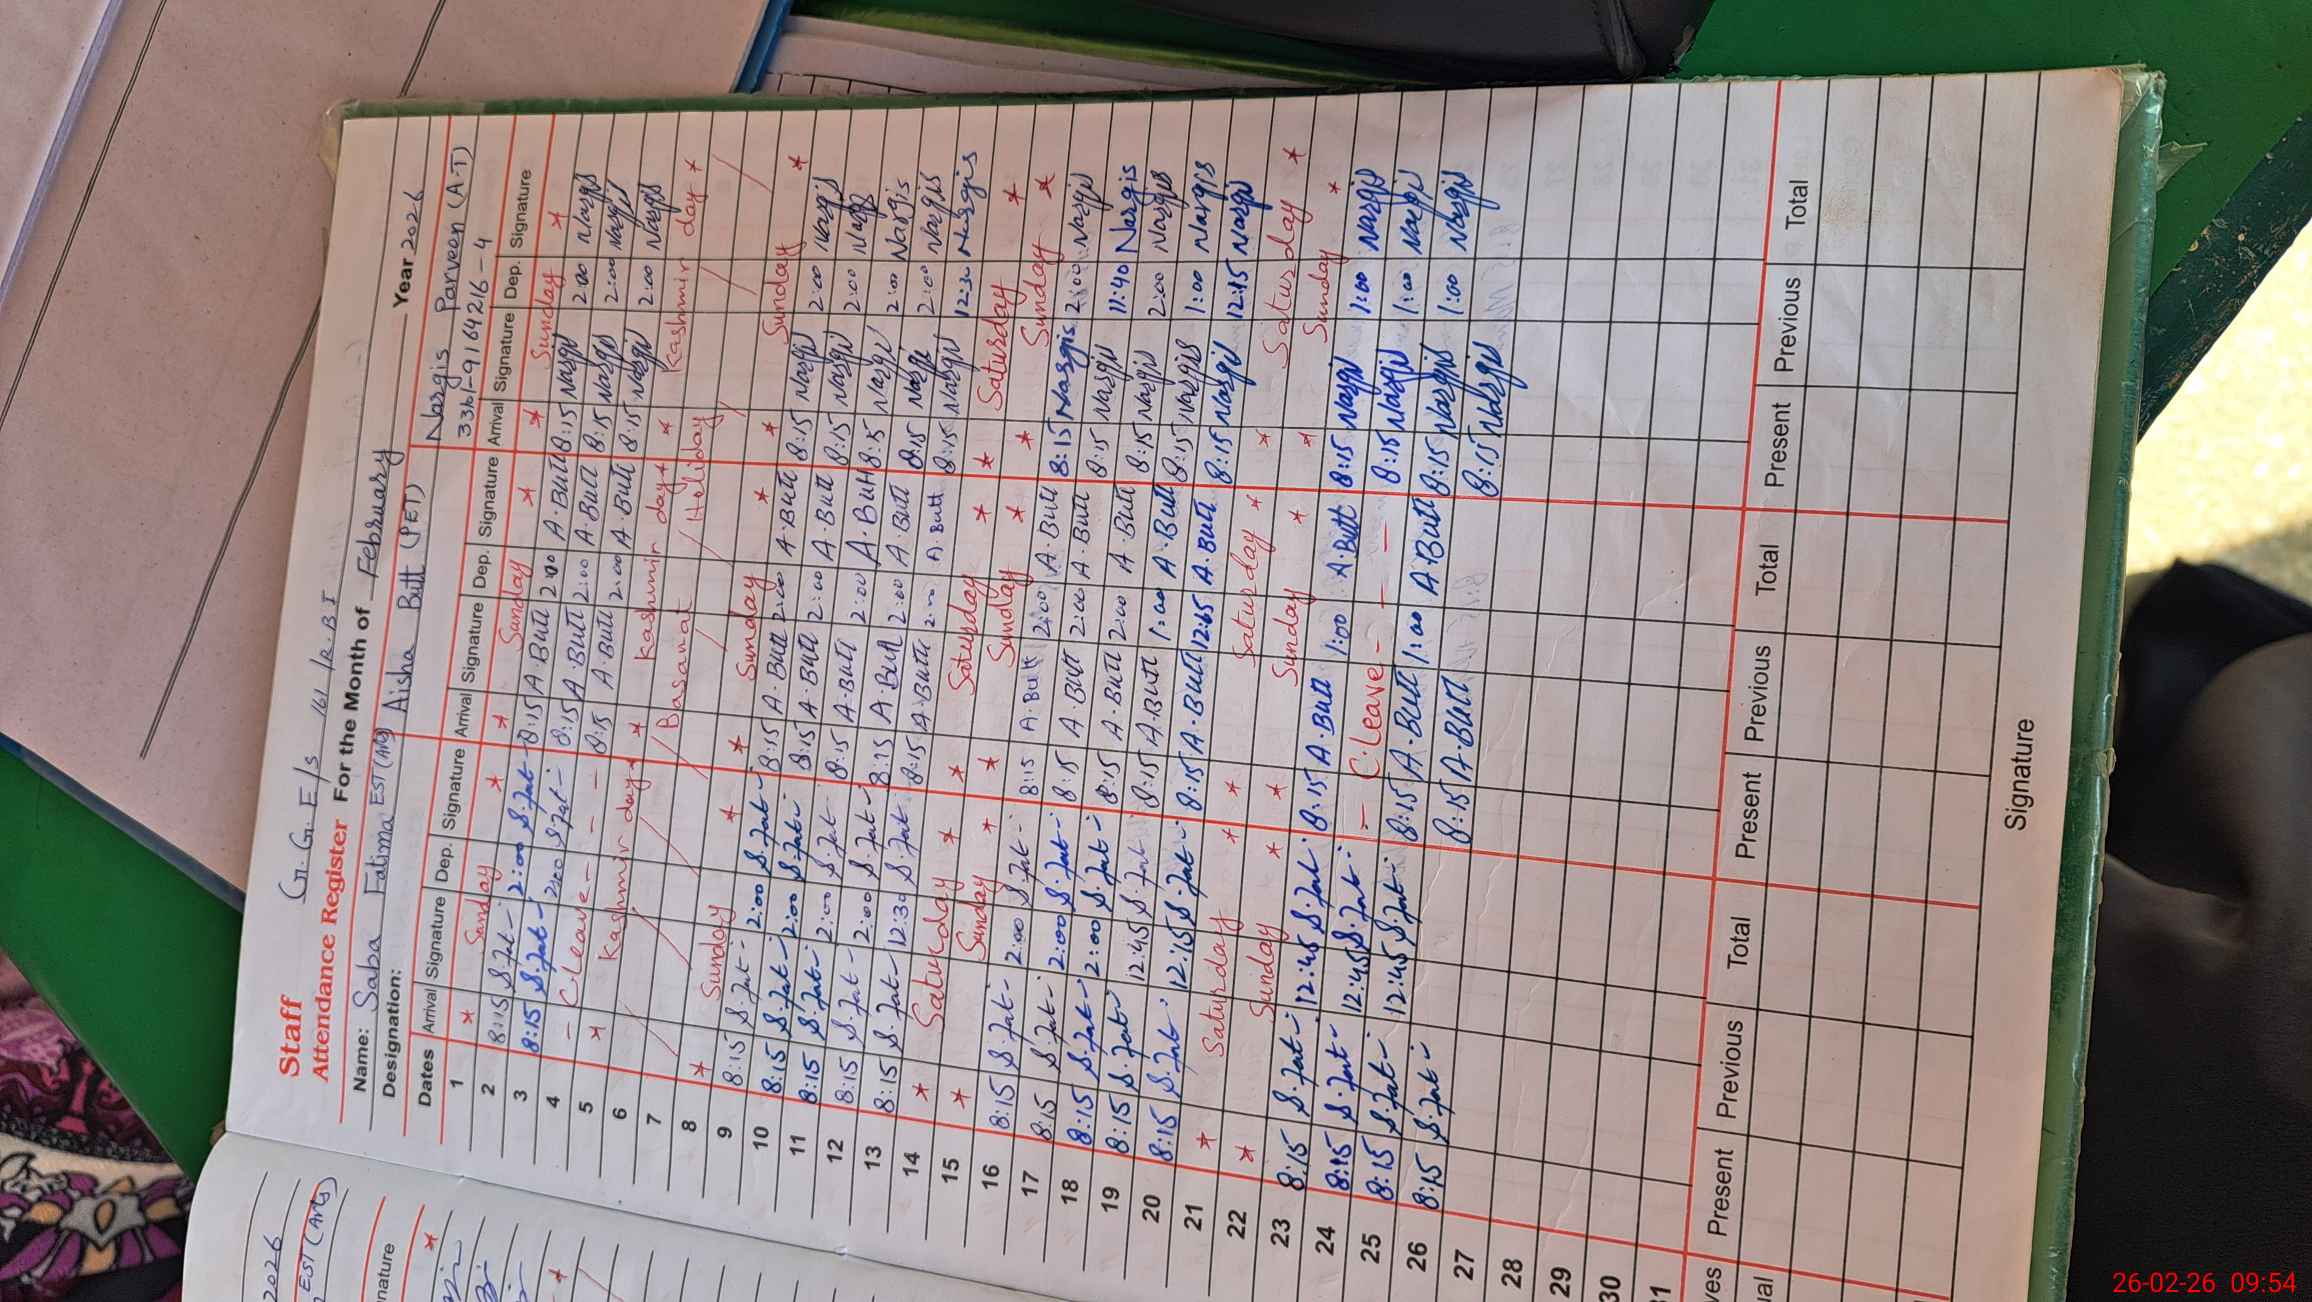 G.G.E/S 161/R.B I
Staff
Attendance Register For the Month of February Year 2026
Name: Saba Fatima EST (Arts) Aisha Butt (PET) Nargis Parveen (A-T)
Designation: 3361-9164216-4
Dates Arrival Signature Dep. Signature Arrival Signature Dep. Signature Arrival Signature Dep. Signature
1 * Sunday * * Sunday * * Sunday *
2 8:15 S.Fat 2:00 S.Fat 8:15 A.Butt 2:00 A.Butt 8:15 Nargis 2:00 Nargis
3 8:15 S.Fat 2:00 S.Fat 8:15 A.Butt 2:00 A.Butt 8:15 Nargis 2:00 Nargis
4 - C.leave - - - 8:15 A.Butt 2:00 A.Butt 8:15 Nargis 2:00 Nargis
5 * Kashmir day * * Kashmir day * * Kashmir day *
6 / Basanat / Holiday /
7
8 * Sunday * * Sunday * * Sunday *
9 8:15 S.Fat 2:00 S.Fat 8:15 A.Butt 2:00 A.Butt 8:15 Nargis 2:00 Nargis
10 8:15 S.Fat 2:00 S.Fat 8:15 A.Butt 2:00 A.Butt 8:15 Nargis 2:00 Nargis
11 8:15 S.Fat 2:00 S.Fat 8:15 A.Butt 2:00 A.Butt 8:15 Nargis 2:00 Nargis
12 8:15 S.Fat 2:00 S.Fat 8:15 A.Butt 2:00 A.Butt 8:15 Nargis 2:00 Nargis
13 8:15 S.Fat 12:30 S.Fat 8:15 A.Butt 2:00 A Butt 8:15 Nargis 12:30 Nargis
14 * Saturday * * Saturday * * Saturday *
15 * Sunday * * Sunday * * Sunday *
16 8:15 S.Fat 2:00 S.Fat 8:15 A.Butt 2:00 A.Butt 8:15 Nargis 2:00 Nargis
17 8:15 S.Fat 2:00 S.Fat 8:15 A.Butt 2:00 A.Butt 8:15 Nargis 11:40 Nargis
18 8:15 S.Fat 2:00 S.Fat 8:15 A.Butt 2:00 A.Butt 8:15 Nargis 2:00 Nargis
19 8:15 S.Fat 12:45 S.Fat 8:15 A.Butt 1:00 A.Butt 8:15 Nargis 1:00 Nargis
20 8:15 S.Fat 12:15 S.Fat 8:15 A.Butt A.Butt 8:15 Nargis 12:15 Nargis
21 * Saturday * * Saturday * * Saturday *
22 * Sunday * * Sunday * * Sunday *
23 8:15 S.Fat 12:45 S.Fat 8:15 A.Butt 1:00 A.Butt 8:15 Nargis 1:00 Nargis
24 8:15 S.Fat 12:45 S.Fat - C.leave - - - 8:15 Nargis 1:00 Nargis
25 8:15 S.Fat 12:45 S.Fat 8:15 A.Butt 1:00 A.Butt 8:15 Nargis 1:00 Nargis
26 8:15 S.Fat 8:15 A.Butt 8:15 Nargis
27
28
29
30
31
Present Previous Total Present Previous Total Present Previous Total
Signature
2026
EST (Arts)
nature
ves
ual
26-02-26 09:54